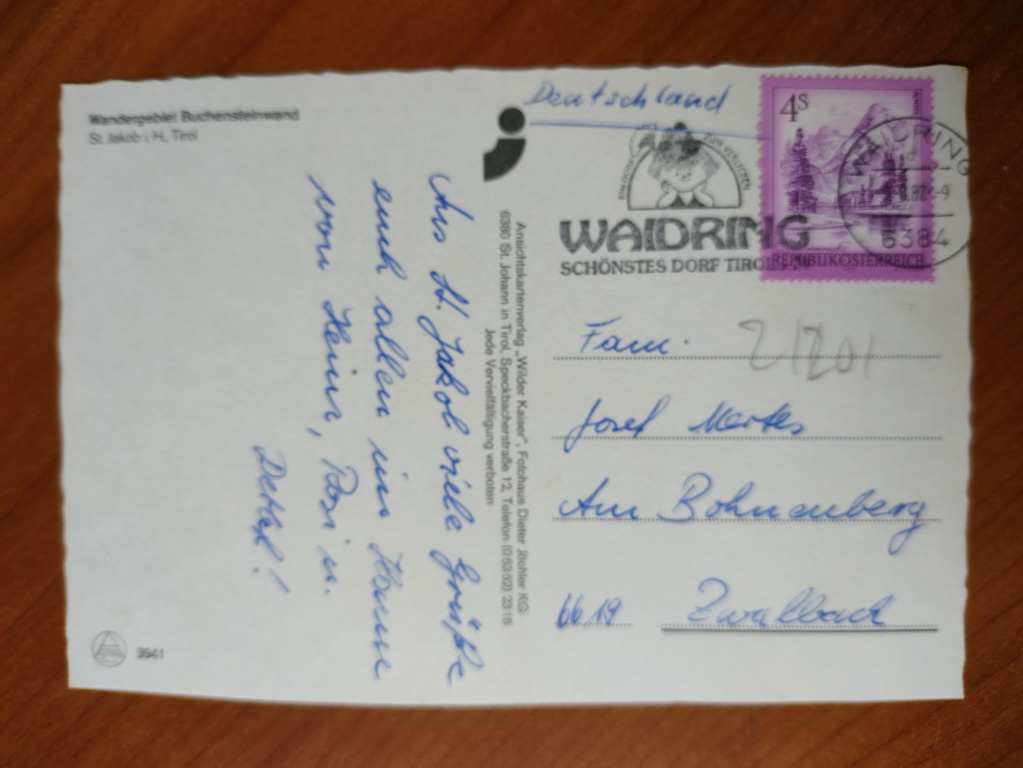 Wandergebiet Buchensteinwand
St. Jakob i. H., Tirol
Aus St. Jakob viele Grüße
euch allen im Hause
von Heinz, Rosi u.
Detlef!
Ansichtskartenverlag „Wilder Kaiser“, Fotohaus Dieter Jöchler KG
6380 St. Johann in Tirol, Speckbacherstraße 12, Telefon (0 53 52) 23 15
Jede Vervielfältigung verboten
3941
Deutschland
4S
REPUBLIK ÖSTERREICH
WAIDRING
6384
ZUM VERLIEBEN
WAIDRING
SCHÖNSTES DORF TIROLS
Fam.
Josef Mertes
Am Bohnenberg
6619 Zwalbach